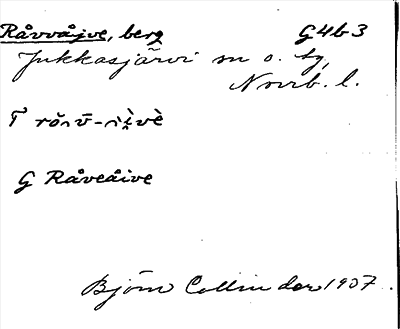 Råvvåjve, berg G4b3
Jukkasjärvi sn o. tg,
Norrb. l.
G Råveåive
Björn Collinder 1937.